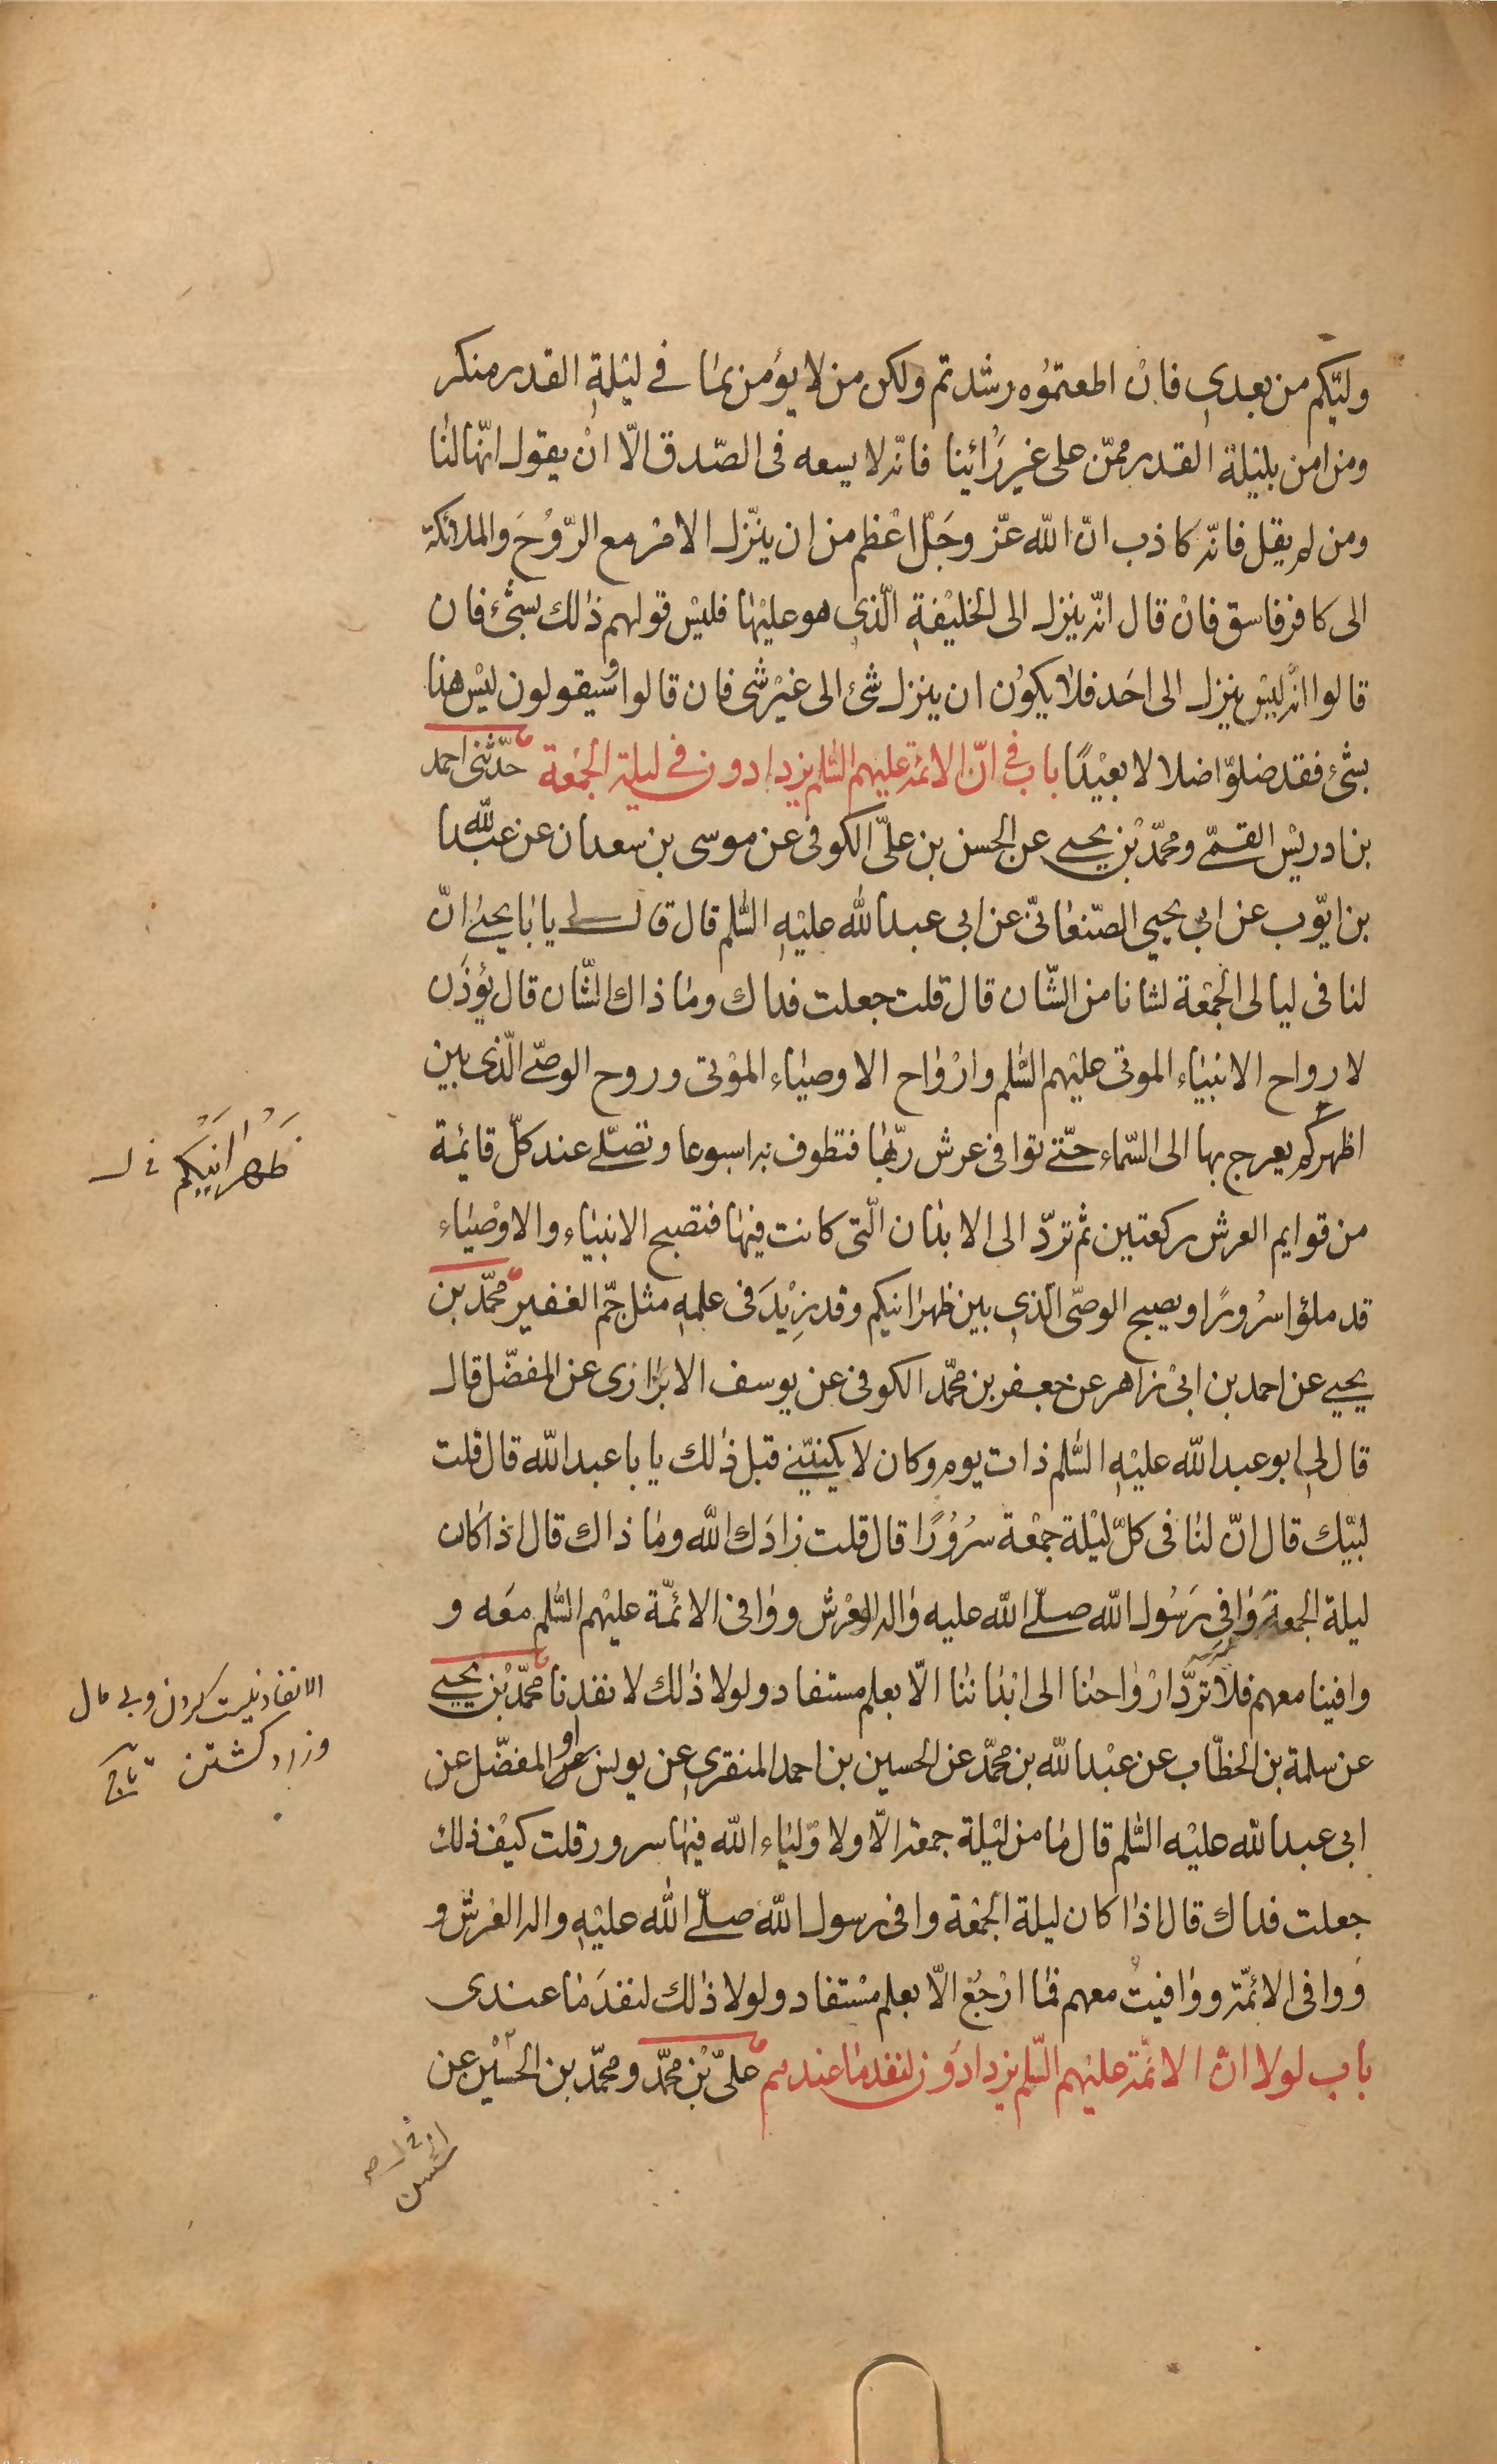 وليّكم من بعدي فان اطعتموُه رشدتم ولكن من لا يؤمن بما في ليْلةِ القدر منكر
ومن امن بليْلة القدر ممّن على غير رَائينا فانّه لا يسعه فى الصّدق الّا انْ يقول انّها لنا
ومن لم يقل فانّه كاذب انّ الله عزّ وجَلّ اعْظم من ان ينّزل الامْر مع الرّوُحَ والملائكة
الى كافر فاسق فانْ قال انّه ينزل الى الخليْفةِ الّذى هو عليْها فليْس قولهم ذالك بشئ فان
قالوا انّه ليْس ينزل الى احَد فلا يكوُن ان ينزل شئ الى غيْر شى فان قالوا وسيقولون ليْس هذا
بشئ فقد ضلّوا ضلالا بعيْدًا باب فى انّ الائمّة عليهم السّلم يزدادون فى ليلة الجمْعة حدّثنى احمد
بن ادريْس القمّى ومحمّد بْن يحيى عن الحسن بن علىّ الكوفى عن موسى بن سعدان عن عبد الله
بن ايّوب عن ابى يحيى الصّنعانىّ عن ابى عبد الله عليْهِ السّلم قال قال لى يا بايحيى انّ
لنا فى ليالى الجمْعة لشانا من الشّان قال قلت جعلت فداك وما ذاك الشّان قال يؤذَن
لارواح الانبيَاء الموتى عليْهم السّلم وارْوَاح الاوصيَاء الموْتى وروح الوصىّ الّذى بين
اظهركم يعرج بها الى السّماء حتّى توافى عرش ربّها فتطوف به اسبوعا وتصلّى عند كلّ قائمة
من قوايم العرش ركعتين ثم تردّ الى الابدان الّتى كانت فيْها فتصبح الانبيَاء والاوْصيَاء
قد ملؤا سرُورًا ويصبح الوصّى الّذى بين ظهرانيكم وقد زِيْدَ فى علمهِ مثل جّم الغفير محمّد بن
يحيى عن احمد بن ابىْ زاهر عن جعفر بن محمّد الكوفى عن يوسف الابزارى عن المفضّل قال
قال لى ابو عبد الله عليْهِ السّلم ذات يوم وكان لا يكنيّنى قبل ذٰلك يا با عبد الله قال قلت
لبيّك قال انّ لنا فى كلّ ليْلة جمْعة سرُوُرًا قال قلت زادَك الله وما ذاك قال اذا كان
ليلة الجمعة وَافى رَسُول الله صلّى الله عليه واله العْرش ووَافى الائمّة عليْهم السّلم معَه و
وافينا معهم فلا تردّ ارْوَاحنا الى ابْدَاننا الّا بعلم مستفاد ولولا ذٰلك لانفدنا محمّد بْن يحيى
عن سلمة بن الخطّاب عن عبْد الله بن محمّد عن الحسين بن احمد المنقرى عن يونس او المفضّل عن
ابى عبد الله عليْه السّلم قال ما من ليْلة جمعة الّا ولاوّليَاء الله فيْها سرور قلت كيْف ذلك
جعلت فداك قال اذا كان ليلة الجمْعة وافى رسول الله صلّى الله عليْهِ واله العْرش و
وَوافى الائمّة ووَافيتُ معهم فما ارْجُع الّا بعلم مسْتفاد ولولا ذٰلك لنفدَ ما عندى
باب لولا انّ الائمّة عليهم السّلم يزدادُون لنفد ما عندهم علىّ بْن محمّد ومحمّد بن الحسيْن عن
ظَهْرَانَيْكم
الانفاد نيست كردن وبى مال
وزاد كشتن تاج
الحسن